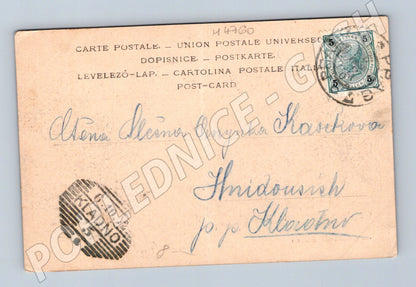 M4760
CARTE POSTALE. – UNION POSTALE UNIVERSE
DOPISNICE. – POSTKARTE.
LEVELEZŐ-LAP. – CARTOLINA POSTALE ITALIA
POST-CARD
5 5
5 5
PRA
Ctěná Slečna Kaschkova
Hnidousich
p. p. Kladno
KLADNO
8
POHLEDNICE - CZECH